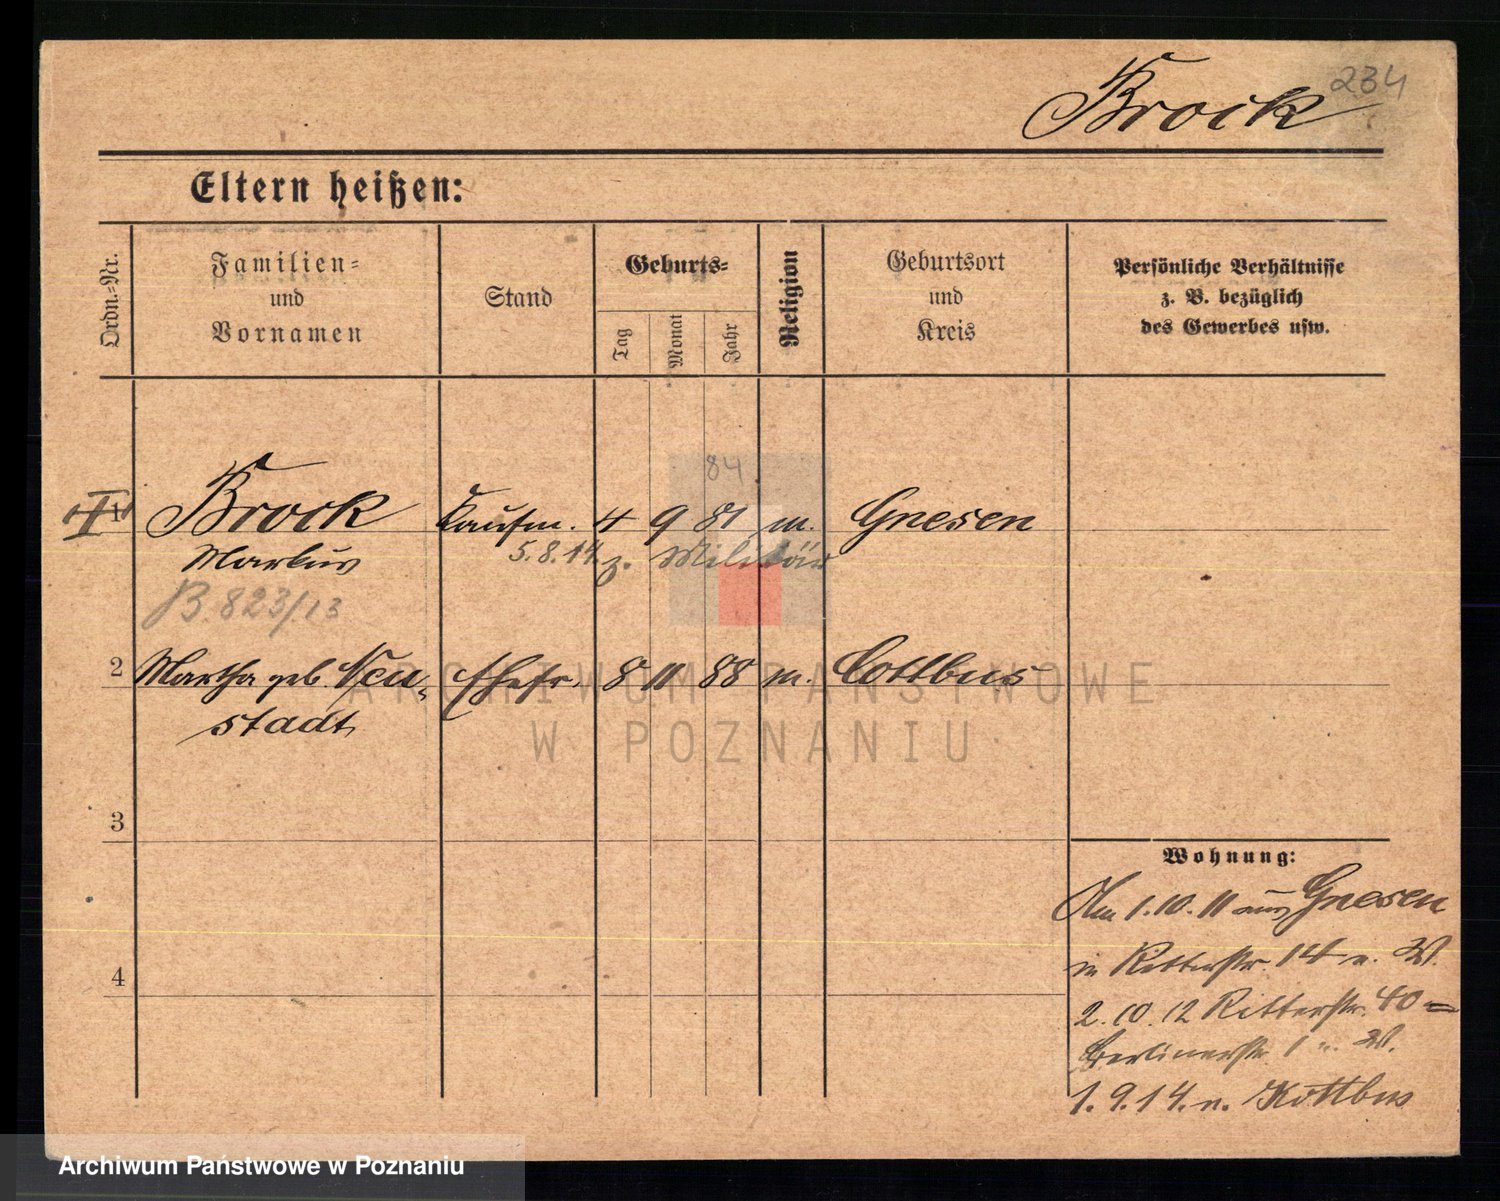 234
Brock
Eltern heißen:
Ordn.-Nr.
Familien-
und
Vornamen
Stand
Geburts-
Tag
Monat
Jahr
Religion
Geburtsort
und
Kreis
Persönliche Verhältnisse
z. B. bezüglich
des Gewerbes usw.
84
1 Brock Kaufm. 4 9 81 m. Gnesen
Markus 5.8.14. z. Militär
B. 823/13
2 Martha geb. Neu- Ehefr. 8 11 88 m. Cottbus
stadt
3
4
Wohnung:
Am 1.10.11 aus Gnesen
in Ritterstr. 14 W.
2.10.12 Ritterstr. 40 =
Berlinerstr. 1 W.
1.9.14. n. Kottbus
ARCHIWUM PAŃSTWOWE
W POZNANIU
Archiwum Państwowe w Poznaniu